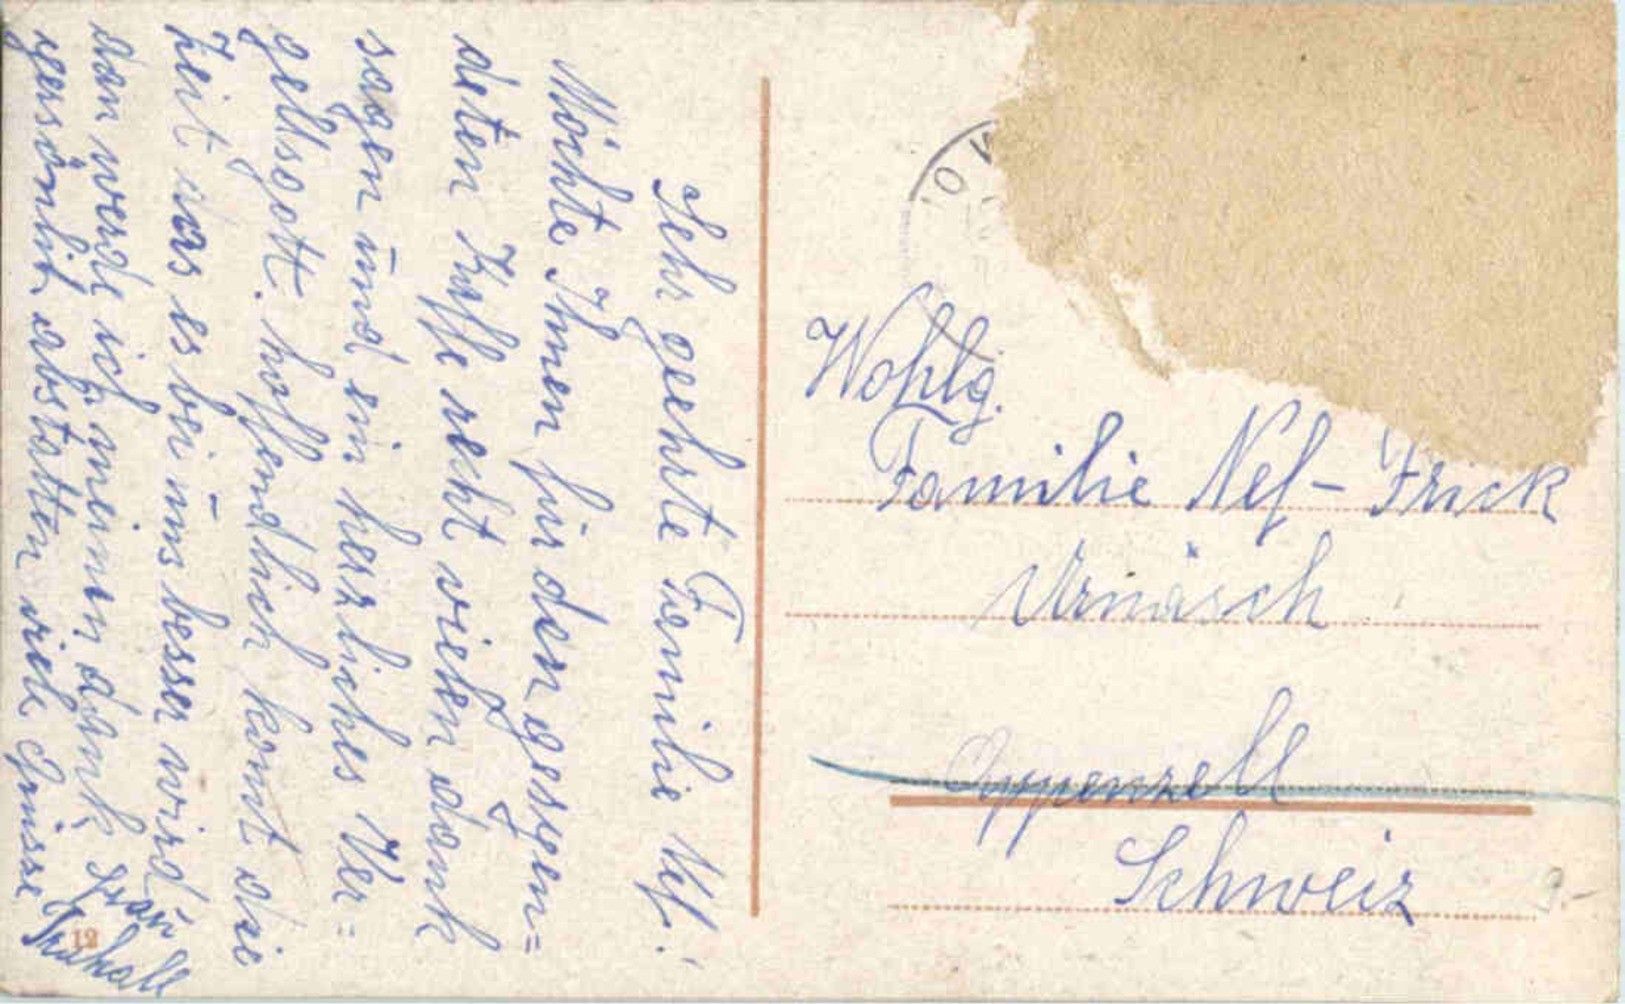 Sehr geehrte Familie Nef!
Möchte Ihnen für den gespen=
deten Kaffe recht vielen dank
sagen und ein herzliches Ver=
gellsgott. hoffendlich komt die
Zeit das es bei uns besser wird
dan werde ich meinen dank
persönlich abstatten viele Grüsse
Frau
12
Wohlg.
Familie Nef - Frick
Urnäsch
Appenzell
Schweiz
3.-